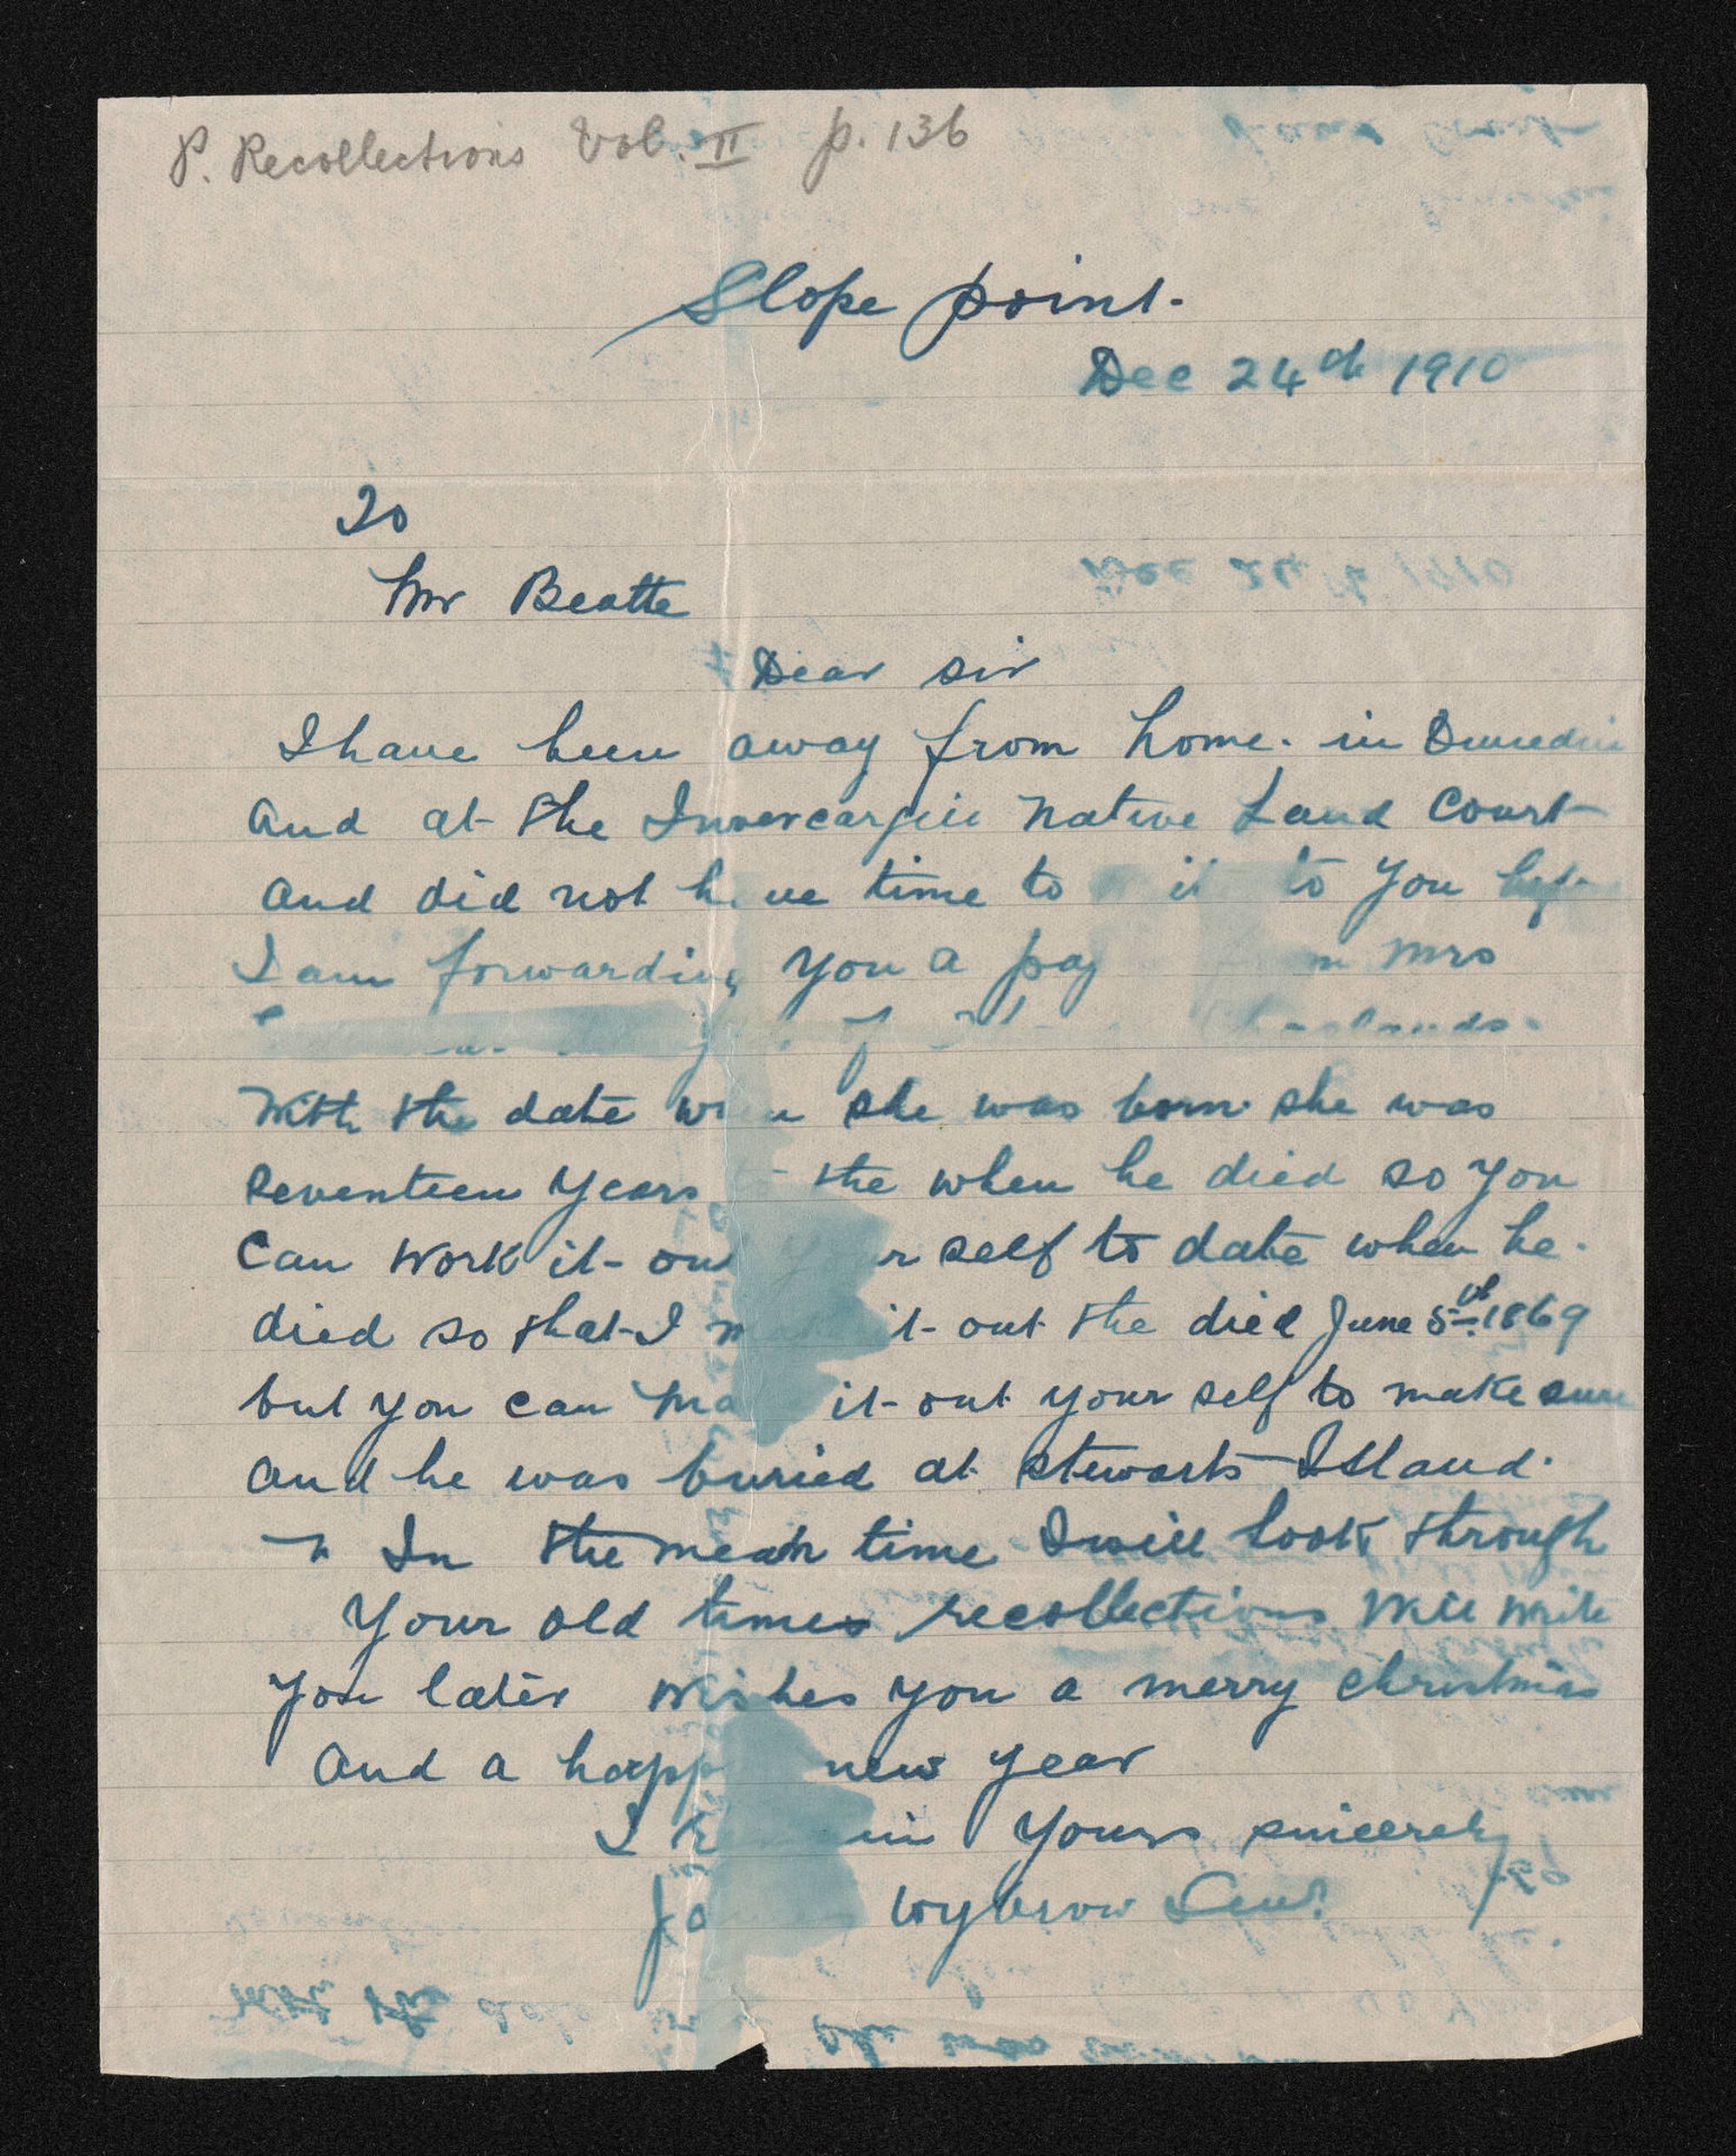 P. Recollections Vol. II p. 136
Slope point.
Dec 24th 1910
To
Mr Beatte
Dear sir
I have been away from home. in Dunedin
And at the Invercargill Native Land Court
And did not have time to to you
I am forwarding you a Mrs
With the date when she was born she was
seventeen years the when he died so you
Can work it out your self to date when he.
died so that I it out the died June 5th 1869
but you can it out your self to make sure
and he was buried at stewarts Island.
In the mean time I will look through
Your old times recollections Will write
you later wishes you a merry christmas
And a happy new year
I remain Yours sincerely
Wybrow Senr.